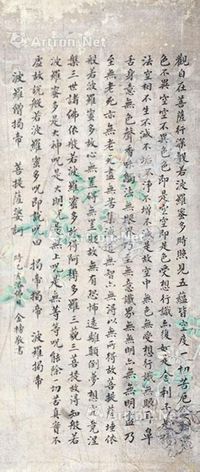 觀自在菩薩行深般若波羅蜜多時照見五蘊皆空度一切苦厄舍利子
色不異空空不異色色即是空空即是色受想行識亦復如是舍利子是諸
法空相不生不滅不垢不淨不增不減是故空中無色無受想行識無眼耳鼻
舌身意無色聲香味觸法無眼界乃至無意識界無無明亦無無明盡乃
至無老死亦無老死盡無苦集滅道無智亦無得以無所得故菩提薩埵依
般若波羅蜜多故心無罣礙無罣礙故無有恐怖遠離顛倒夢想究竟涅
槃三世諸佛依般若波羅蜜多故得阿耨多羅三藐三菩提故知般若
波羅蜜多是大神咒是大明咒是無上咒是無等等咒能除一切苦真實不
虛故說般若波羅蜜多咒即說咒曰 揭帝揭帝 波羅揭帝
波羅僧揭帝 菩提薩婆訶 敬書